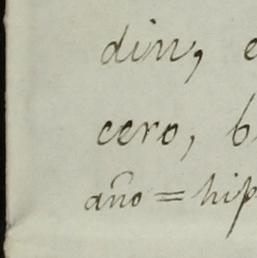 din, e
cero, b
año = hip